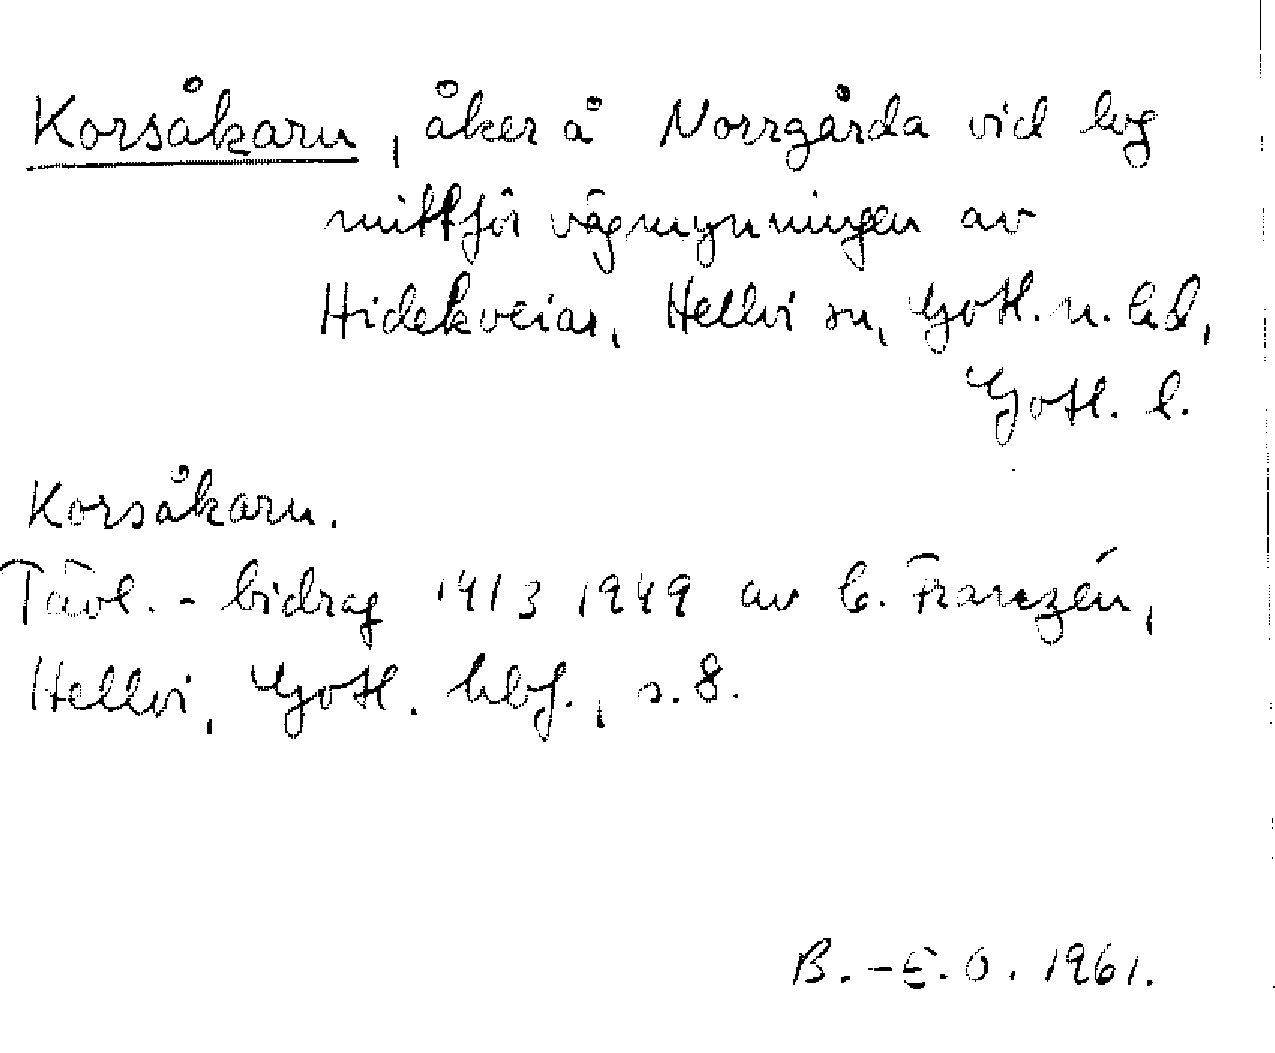 Korsåkarn, åker å Norrgårda vid lvg
mittför vägmynningen av
Hidekveiar, Hellvi sn, Gotl. n. hd,
Gotl. l.
Korsåkarn.
Tävl.-bidrag 1413 1949 av C. Franzén,
Hellvi, Gotl. hbf., s. 8.
B.-E. O. 1961.